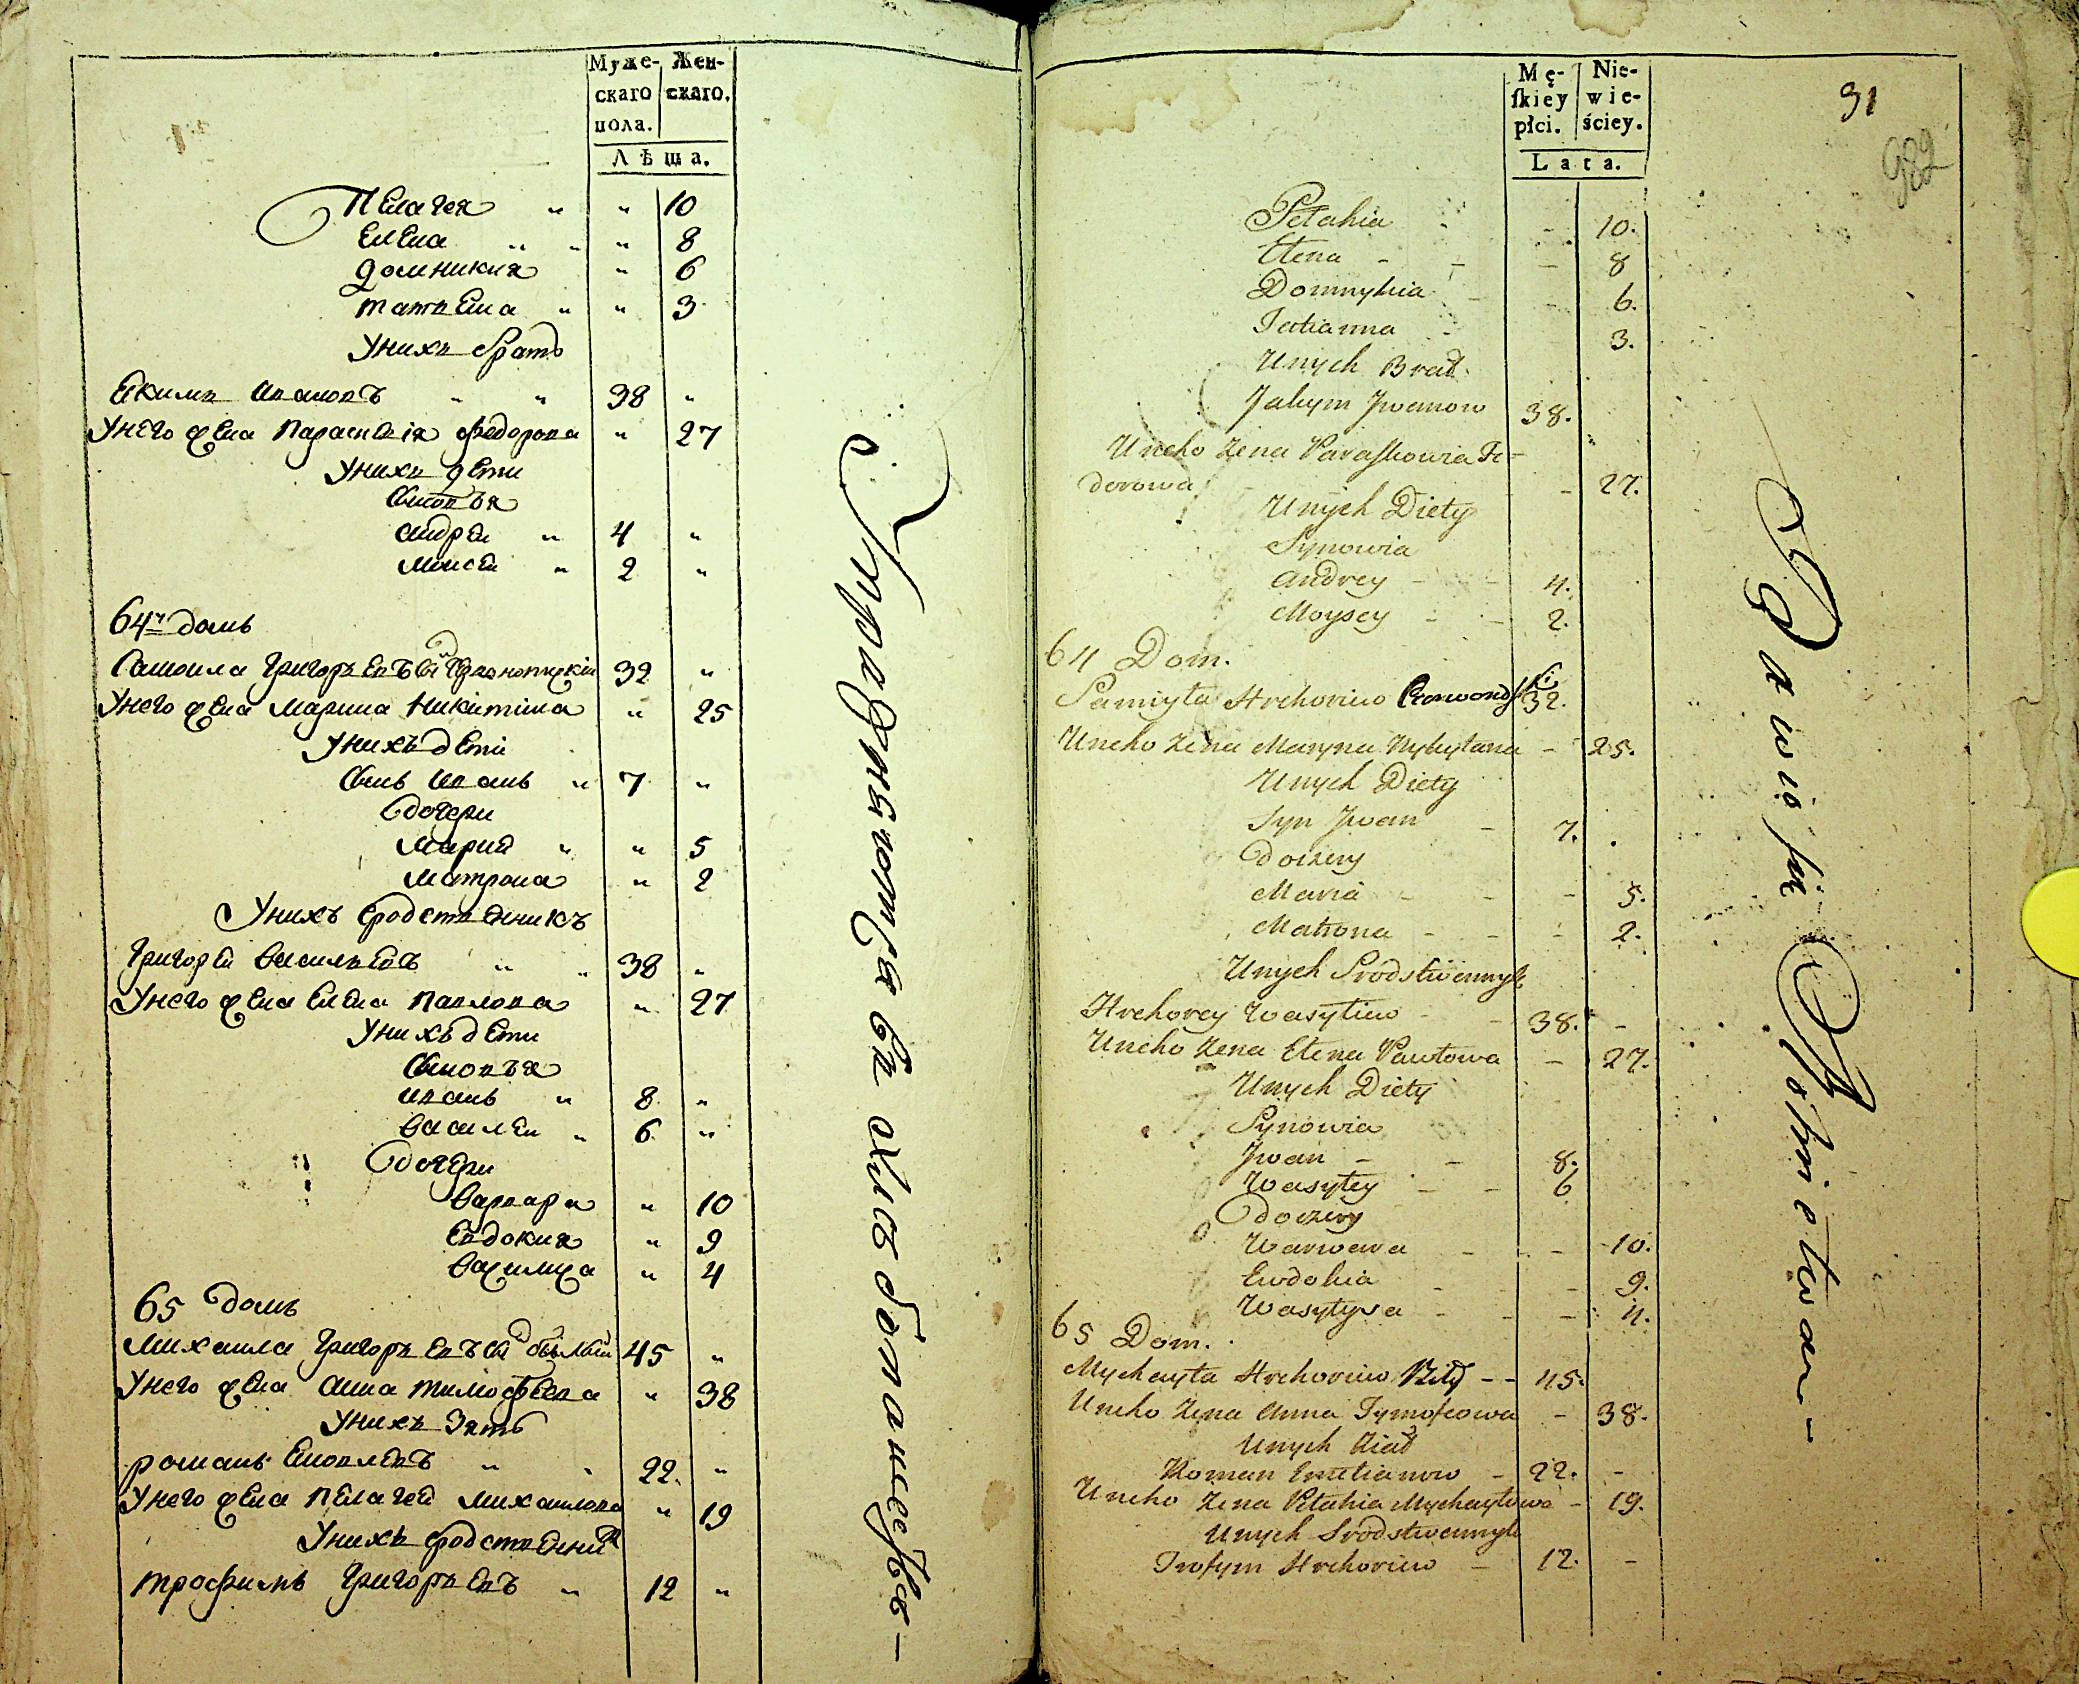 Муже-скаго пола. Жен-скаго.
Лѣта.
Пелагея " " 10
Елена " " " 8
Домникия " 6
татвена " " 3
Унихъ братъ
Екимъ Ивановъ " " 38 "
Унего жена Парасковія Федорова " 27
Унихъ дети
Сыновья
Андрей " 4 "
Моисей " 2 "
64й домъ
Самоила Григорьевъ 32 "
Унего жена Марина Никитина " 25
Унихъ дети
Сынъ Иванъ " 7 "
Дочери
Мария " " 5
Матрона " 2
Унихъ Сродственикъ
Григорей Васильевъ " " 38 "
Унего жена Елена Павлова " 27
Унихъ дети
Сыновья
Иванъ " 8 "
Василей " 6 "
Дочери
Варвара " 10
Евдокия " 9
Василиса " 4
65 домъ
Михаила Григорьевъ Сынъ Белый 45 "
Унего жена Анна Тимофеева " 38
Унихъ Зять
Романъ " " 22. "
Унего жена Пелагея Михаилова " 19
Унихъ Сродственни
Трофимъ Григорьевъ " 12 "
Męſkiey płci. Niewieściey.
Lata.
31
982
Pelahia - 10.
Elena - - - 8
Domnykia - - 6.
Tatianna - 3.
Unych Brat
Jakym Jwanow 38.
Uneho Zena Paraſkowia Fe-
dorowa - 27.
Unych Diety
Synowia
Andrey - - 4.
Moysey - - 2.
64 Dom.
Samiyła Hrehoriew 32.
Uneho Zena Maryna Nykytana - 25.
Unych Diety
Syn Jwan - 7.
Doczery
Maria - - - 5.
Matrona - - - 2.
Unych Srodstwennyk
Hrehorey Wasyliew - - 38. -
Uneho Zena Elena Pawłowa - 27.
Unych Diety
Synowia
Jwan - - 8.
Wasyley - - 6
Doczery
Warwara - - - 10.
Ewdokia - - 9.
Wasylysa - - - 4.
65 Dom.
Mychayła Hrehoriew Biły - - 45.
Uneho Zena Anna Tymofeowa - 38.
Unych Ziat
Roman Emelianow - 22. -
Uneho Zena Pelahia Mychayłowa - 19.
Unych Srodstwennyk
Trofym Hrehoriew - 12. -